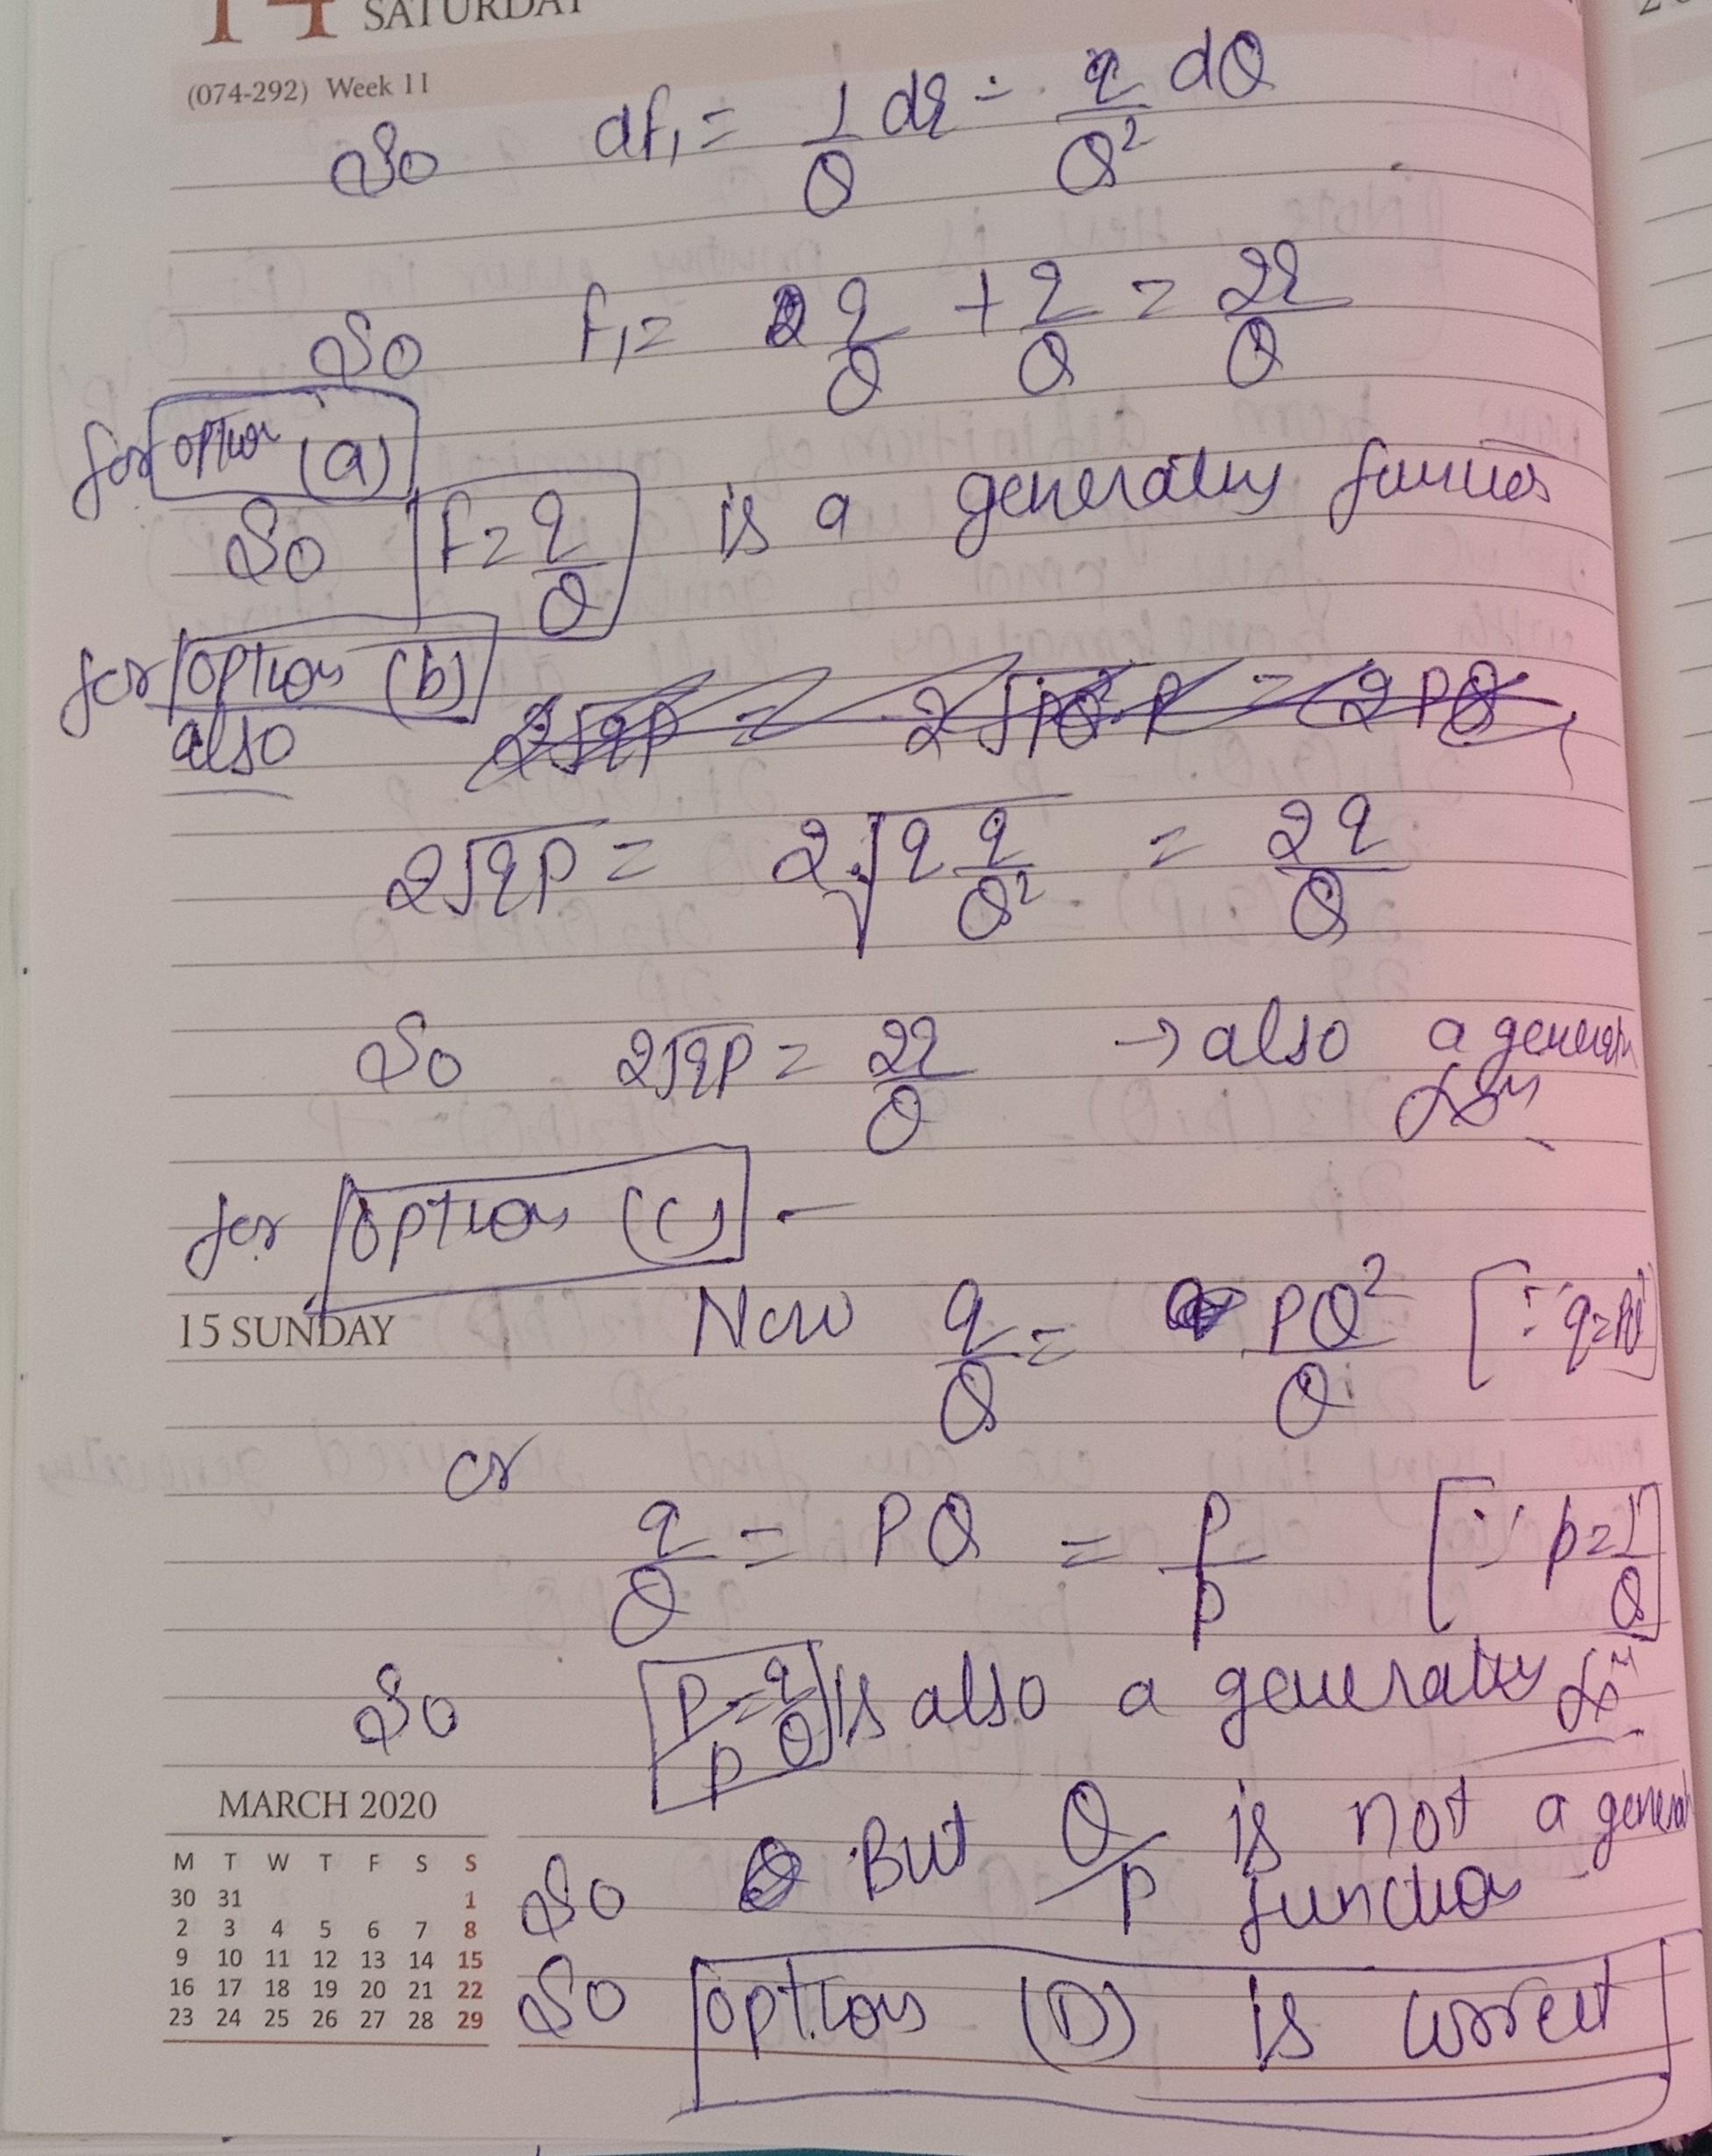 14 SATURDAY
(074-292) Week 11
So dF₁ = 1/Q dq - q/Q² dQ
So F₁ = q/Q + q/Q = 2q/Q
for option (a)
So F = q/Q is a generating function
for option (b)
also 2√qp = 2√PQ² p = 2PQ
2√qP = 2√q q/Q² = 2q/Q
So 2√qP = 2q/Q → also a generatin fxⁿ
for option (c) -
15 SUNDAY
Now q/Q = PQ²/Q [∵ q=PQ²]
or
q/Q = PQ = P/p [∵ p=1/Q]
So P/p = q/Q is also a generating fxⁿ
So But Q/p is not a general function
So option (D) is correct
MARCH 2020
M T W T F S S
30 31 1
2 3 4 5 6 7 8
9 10 11 12 13 14 15
16 17 18 19 20 21 22
23 24 25 26 27 28 29